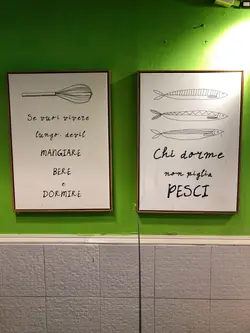 Se vuoi vivere
lungo: devil
MANGIARE
BERE
e
DORMIRE
Chi dorme
non piglia
PESCI